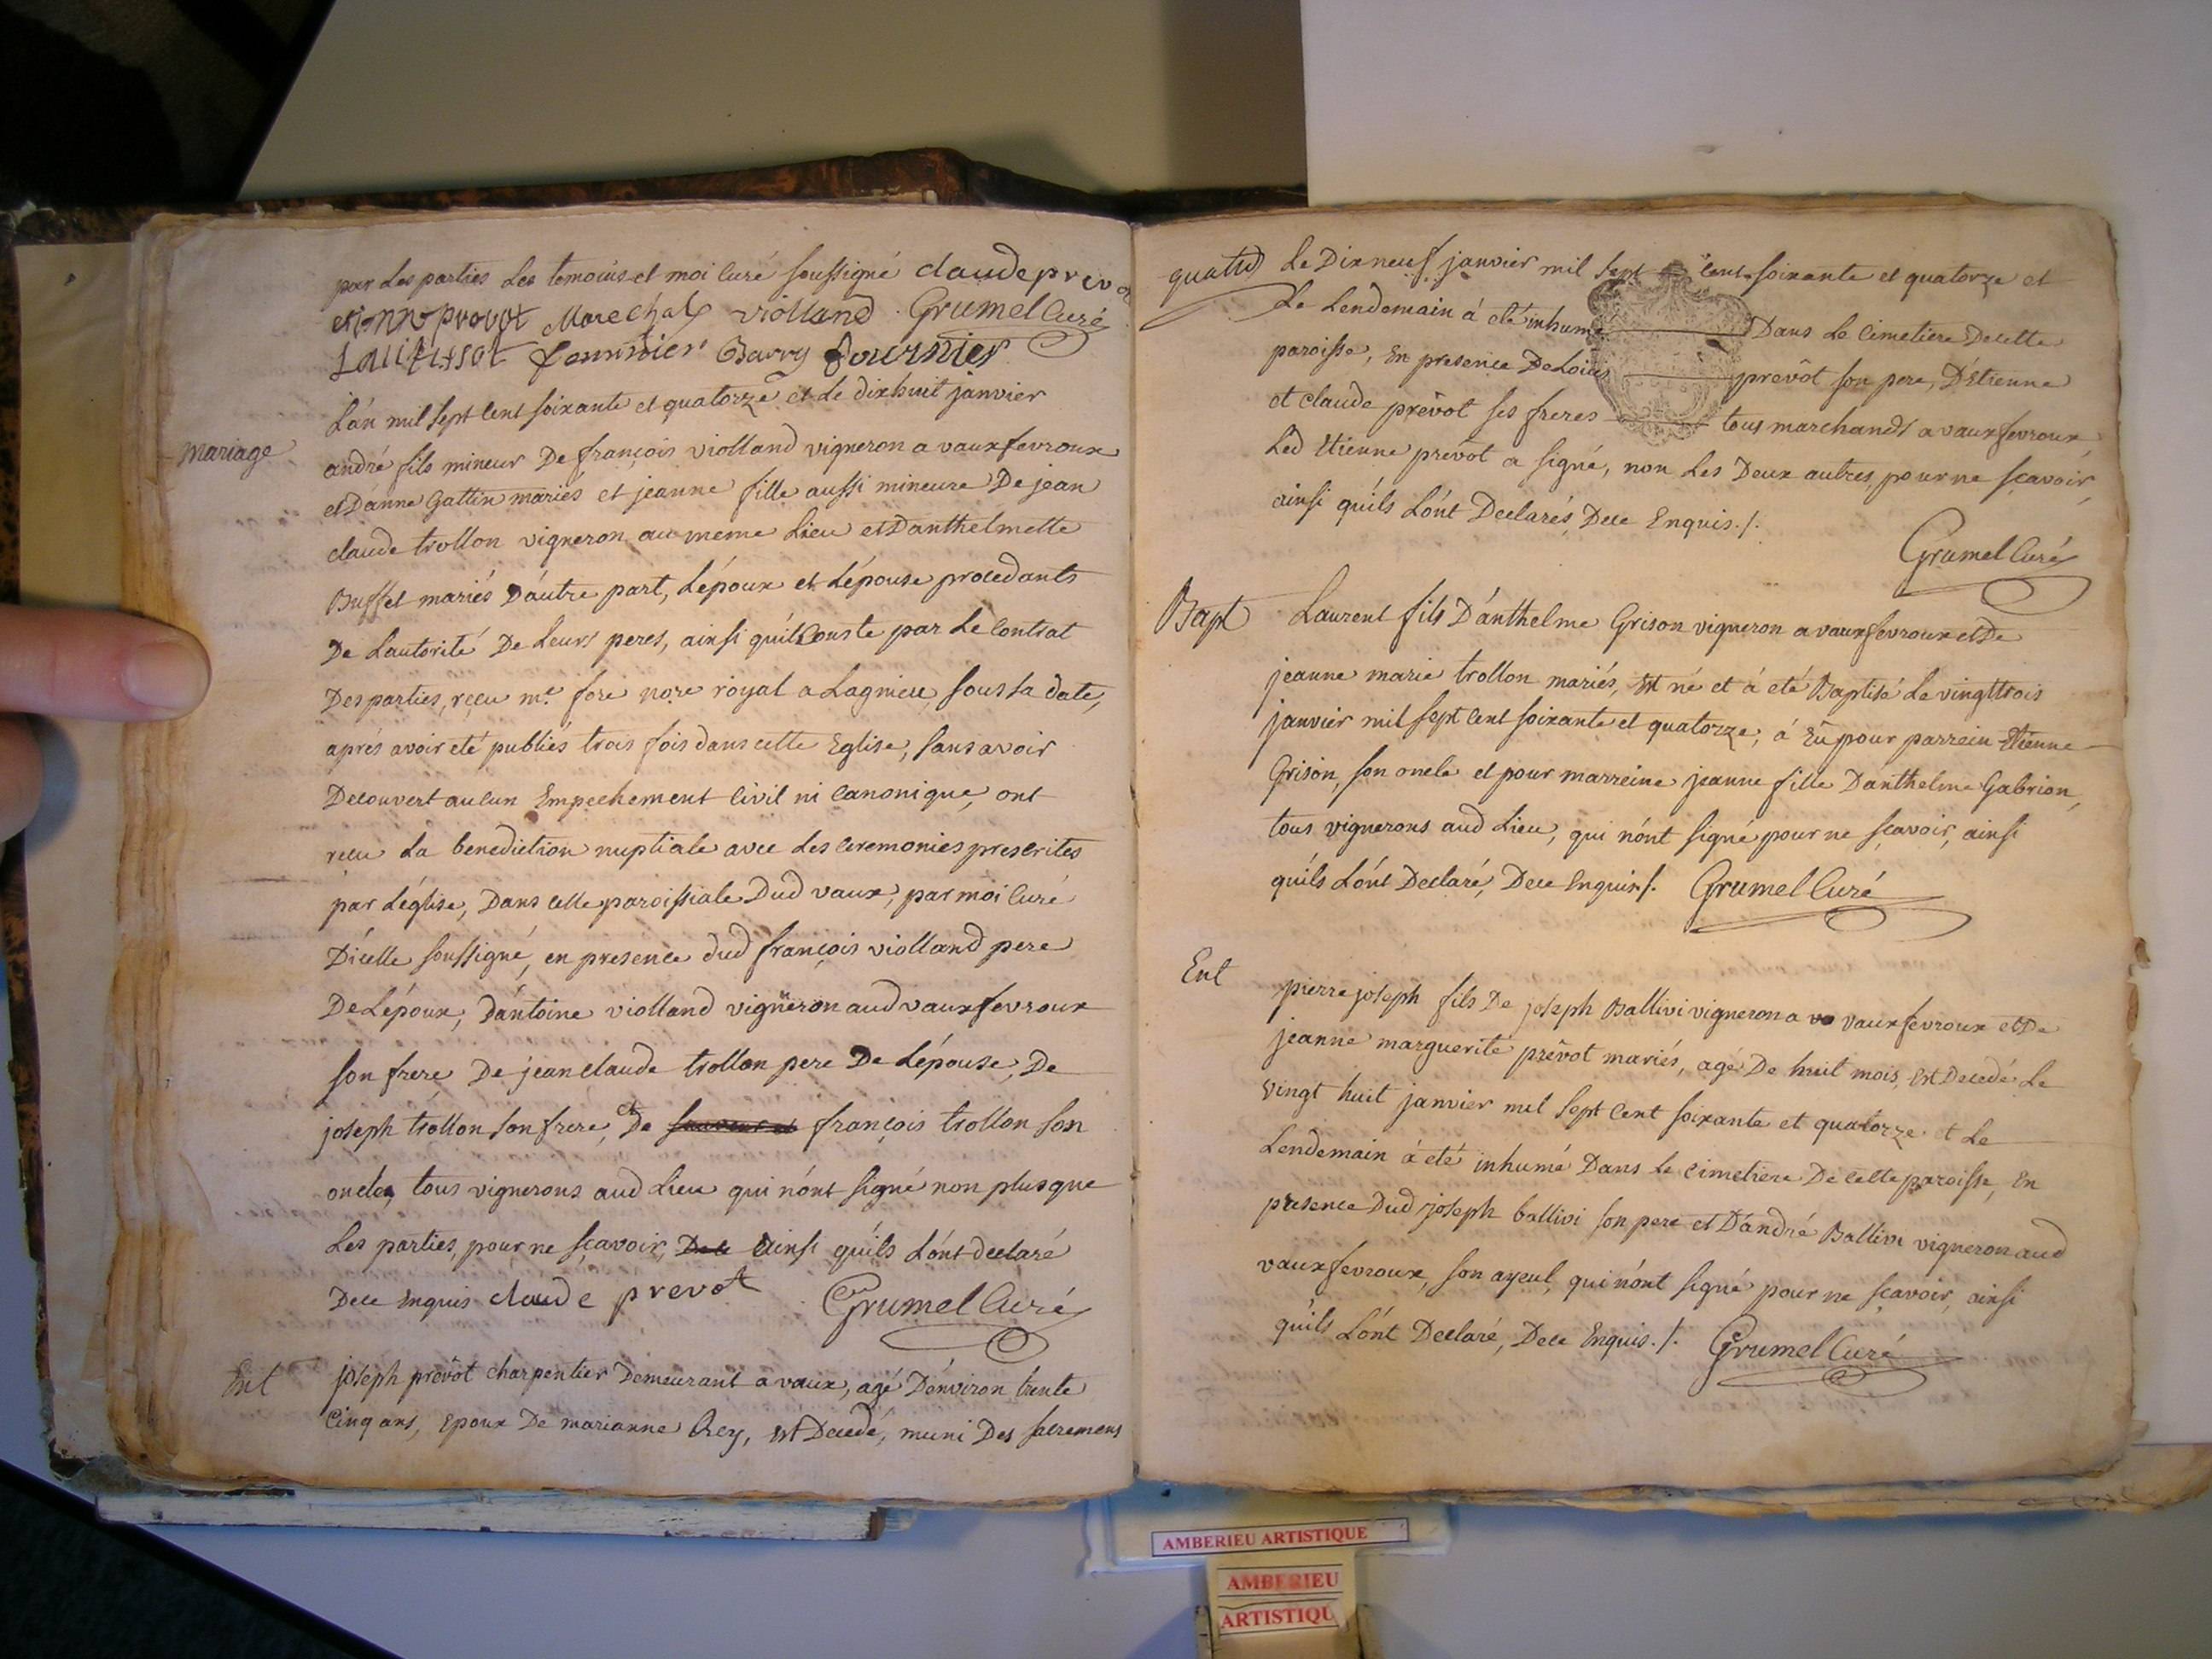 par les parties les temoins et moi Curé soussigné claude prevo
etinne provot Marechal violland Grumel Curé
Barry fournier
L'an mil sept Cent soixante et quatorze et le dixhuit janvier
Mariage
andré fils mineur De françois violland vigneron a vauxfevroux
et D'anne Gattin mariés et jeanne fille aussi mineure De jean
claude trollon vigneron au meme Lieu et D'anthelmette
Buffet mariés D'autre part, L'époux et L'épouse procedants
De L'autorité De Leurs peres, ainsi qu'il Conste par Le Contrat
Des parties, reçu me. fore nore royal a Lagnieu sous sa date,
aprés avoir eté publiés trois fois dans cette Eglise, sans avoir
Decouvert aucun Empechement Civil ni Canonique, ont
reçu La benediction nuptiale avec Les Ceremonies prescrites
par L'église, Dans celle paroissiale Dud vaux, par moi Curé
D'icelle soussigné, en presence dud françois violland pere
De L'époux, D'antoine violland vigneron aud vauxfevroux
son frere De jean claude trollon pere De L'épouse, De
joseph trollon son frere, et De françois trollon son
oncle, tous vignerons aud Lieu qui n'ont signé non plus que
Les parties, pour ne sçavoir, Dece ainsi qu'ils L'ont declaré
Dece Enquis claude prevot Grumel Curé
Ent joseph prevôt charpentier Demeurant a vaux, agé D'environ trente
Cinq ans, Epoux De marianne Rey, est Decedé, muni Des sacremens
quatid Le Dix neuf janvier mil sept Cent soixante et quatorze et
Le Lendemain á eté inhumé Dans Le Cimetiere De cette
paroisse, En presence De Loius prevôt son pere, D'Etienne
et claude prevôt ses freres tous marchands a vauxfevroux,
Led Etienne prevôt a signé, non Les Deux autres, pour ne sçavoir,
ainsi qu'ils L'ont Declarés, Dece Enquis./.
Grumel Curé
Bapt Laurent fils D'anthelme Grison vigneron a vauxfevroux et De
jeanne marie trollon mariés, est né et á eté Baptisé Le vingttrois
janvier mil sept Cent soixante et quatorze, á Eû pour parrein Etienne
Grison, son oncle et pour marreine jeanne fille D'anthelme Gabrion,
tous vignerons aud Lieu, qui n'ont signé pour ne sçavoir, ainsi
qu'ils L'ont Declaré, Dece Enquis./. Grumel Curé
Ent
pierre joseph fils De joseph Ballivi vigneron a va vauxfevroux et De
jeanne marguerite prevôt mariés, agé De huit mois, est Decedé Le
vingt huit janvier mil sept Cent soixante et quatorze et Le
Lendemain á eté inhumé Dans Le Cimetiere De cette paroisse, En
presence Dud joseph ballivi son pere et D'andré Ballivi vigneron aud
vauxfevroux, son ayeul, qui n'ont signé pour ne sçavoir, ainsi
qu'ils L'ont Declaré, Dece Enquis./. Grumel Curé
AMBERIEU ARTISTIQUE
AMBERIEU
ARTISTIQU